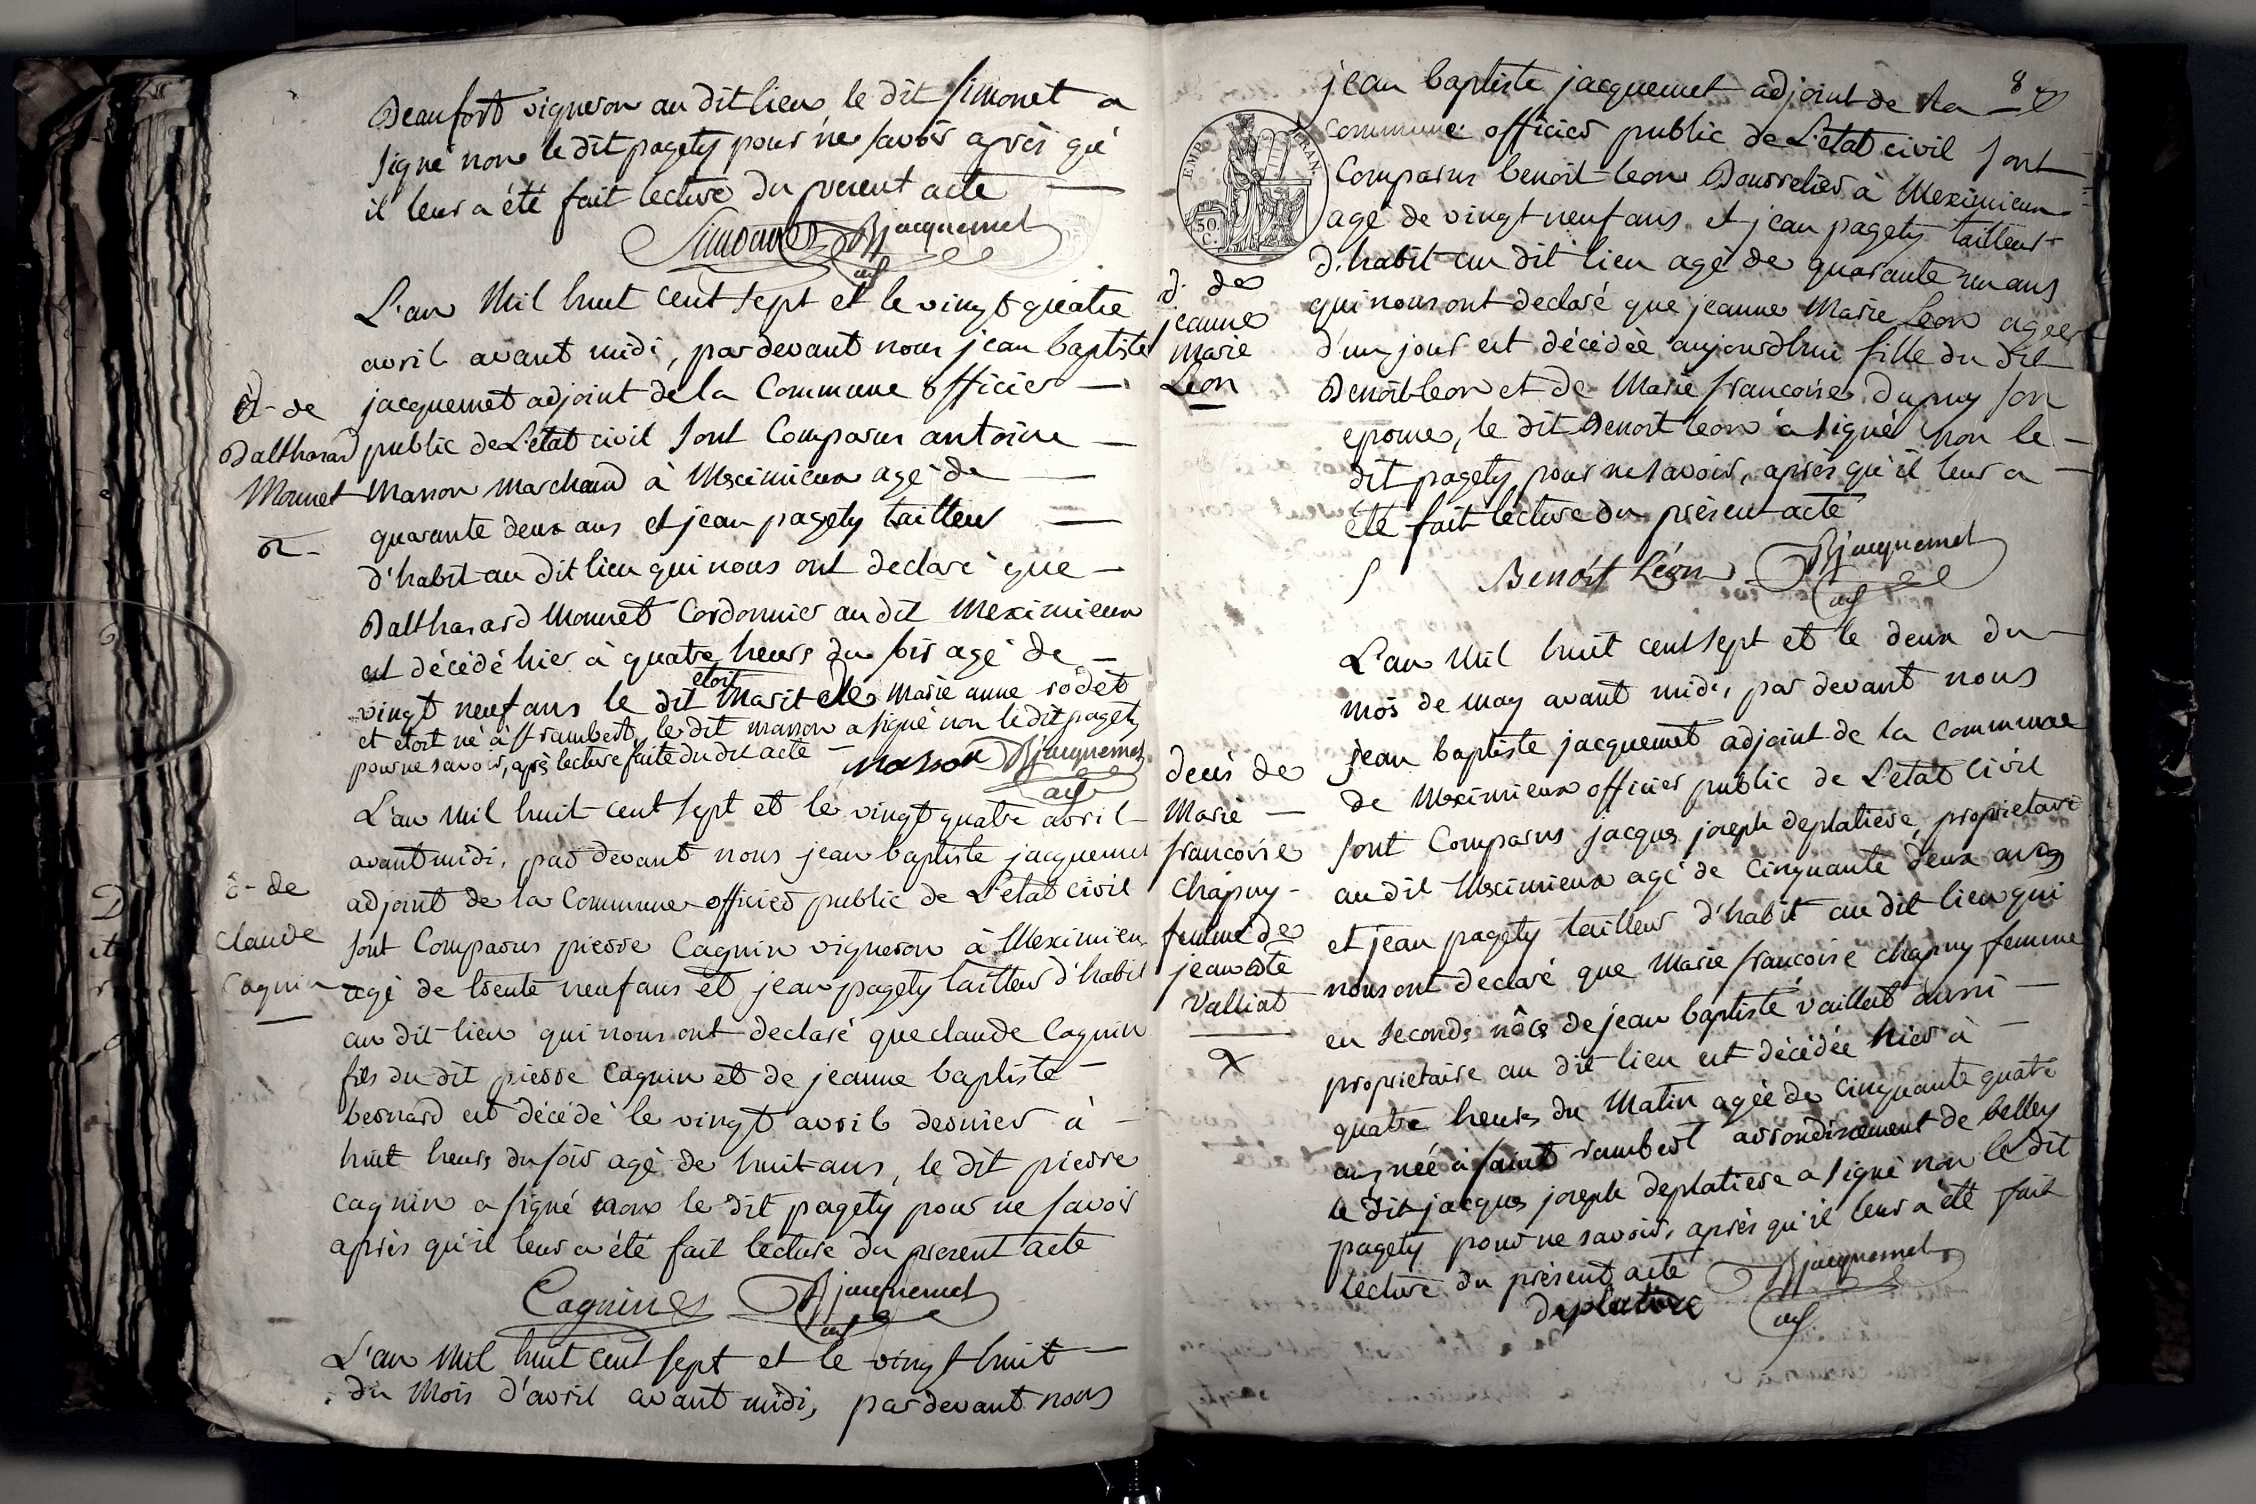 Beaufort vigneron au dit lieu le dit Simonet a
signé non le dit pagety pour ne savoir après qé
il leur a été fait lecture du present acte
Simonet Bjacquemet
adj
L'an Mil huit cent sept et le vingt quatre
avril avant midi, pardevant nous jean baptiste
jacquemet adjoint de la Commune officier
public de L'état civil sont Comparus antoine
Masson Marchand à Meximieux agé de
quarante deux ans et jean pagety tailleur
d'habit au dit lieu qui nous ont declaré que
Balthazard Monnet Cordonnier au dit Meximieux
est décédé hier à quatre heures du soir agé de
vingt neuf ans le dit etoit Marit de Marie anne rodet
et etoit né à St rambert, le dit masson a signé non le dit pagety
pour ne savoir, après lecture faite du dit acte
Masson Bjacquemet
adj
D. de
Balthazard
Monnet
L'an Mil huit cent sept et le vingt quatre avril
avant midi, par devant nous jean baptiste jacquemet
adjoint de la Commune officier public de L'état civil
sont Comparus pierre Cagnin vigneron à Meximieux
agé de trente neuf ans et jean pagety tailleur d'habit
au dit lieu qui nous ont declaré que claude Cagnin
fils du dit pierre Cagnin et de jeanne baptiste
bernard est décédé le vingt avril dernier à
huit heures du soir agé de huit ans, le dit pierre
Cagnin a signé non le dit pagety pour ne savoir
après qu'il leur a été fait lecture du present acte
Cagnin Bjacquemet
adj
D. de
Claude
Cagnin
L'an Mil huit cent sept et le vingt huit
du Mois d'avril avant midi, pardevant nous
8
jean baptiste jacquemet adjoint de la
commune officier public de L'état civil sont
Comparus benoit leon Bourrelier à Meximieux
agé de vingt neuf ans et jean pagety tailleur
d'habit au dit lieu agé de quarante un ans
qui nous ont declaré que jeanne Marie Leon agée
d'un jour est décédée aujourdhui fille du dit
Benoit leon et de Marie francoise dupuy son
epouse, le dit Benoit leon a signé non le
dit pagety pour ne savoir, après qu'il leur a
été fait lecture du présent acte
Benoit Léon Bjacquemet
adj
EMP. FRAN.
50 C.
d. de
jeanne
Marie
Léon
L'an Mil huit cent sept et le deux du
mois de may avant midi, par devant nous
jean baptiste jacquemet adjoint de la commune
de Meximieux officier public de L'état Civil
sont Comparus jacques joseph deplatiere, proprietaire
au dit Meximieux agé de cinquante deux ans
et jean pagety tailleur d'habit au dit lieu qui
nous ont declaré que Marie francoise chapuy femme
en seconds nôces de jean baptiste vailliat aussi
proprietaire au dit lieu est décédée hier à
quatre heures du Matin agée de cinquante quatre
ans née à saint rambert arrondissement de belley
le dit jacques joseph deplatiere a signé non le dit
pagety pour ne savoir, après qu'il leur a été fait
lecture du présent acte
deplatiere Bjacquemet
adj
decès de
Marie
francoise
Chapuy
femme de
jean bte
Valliat